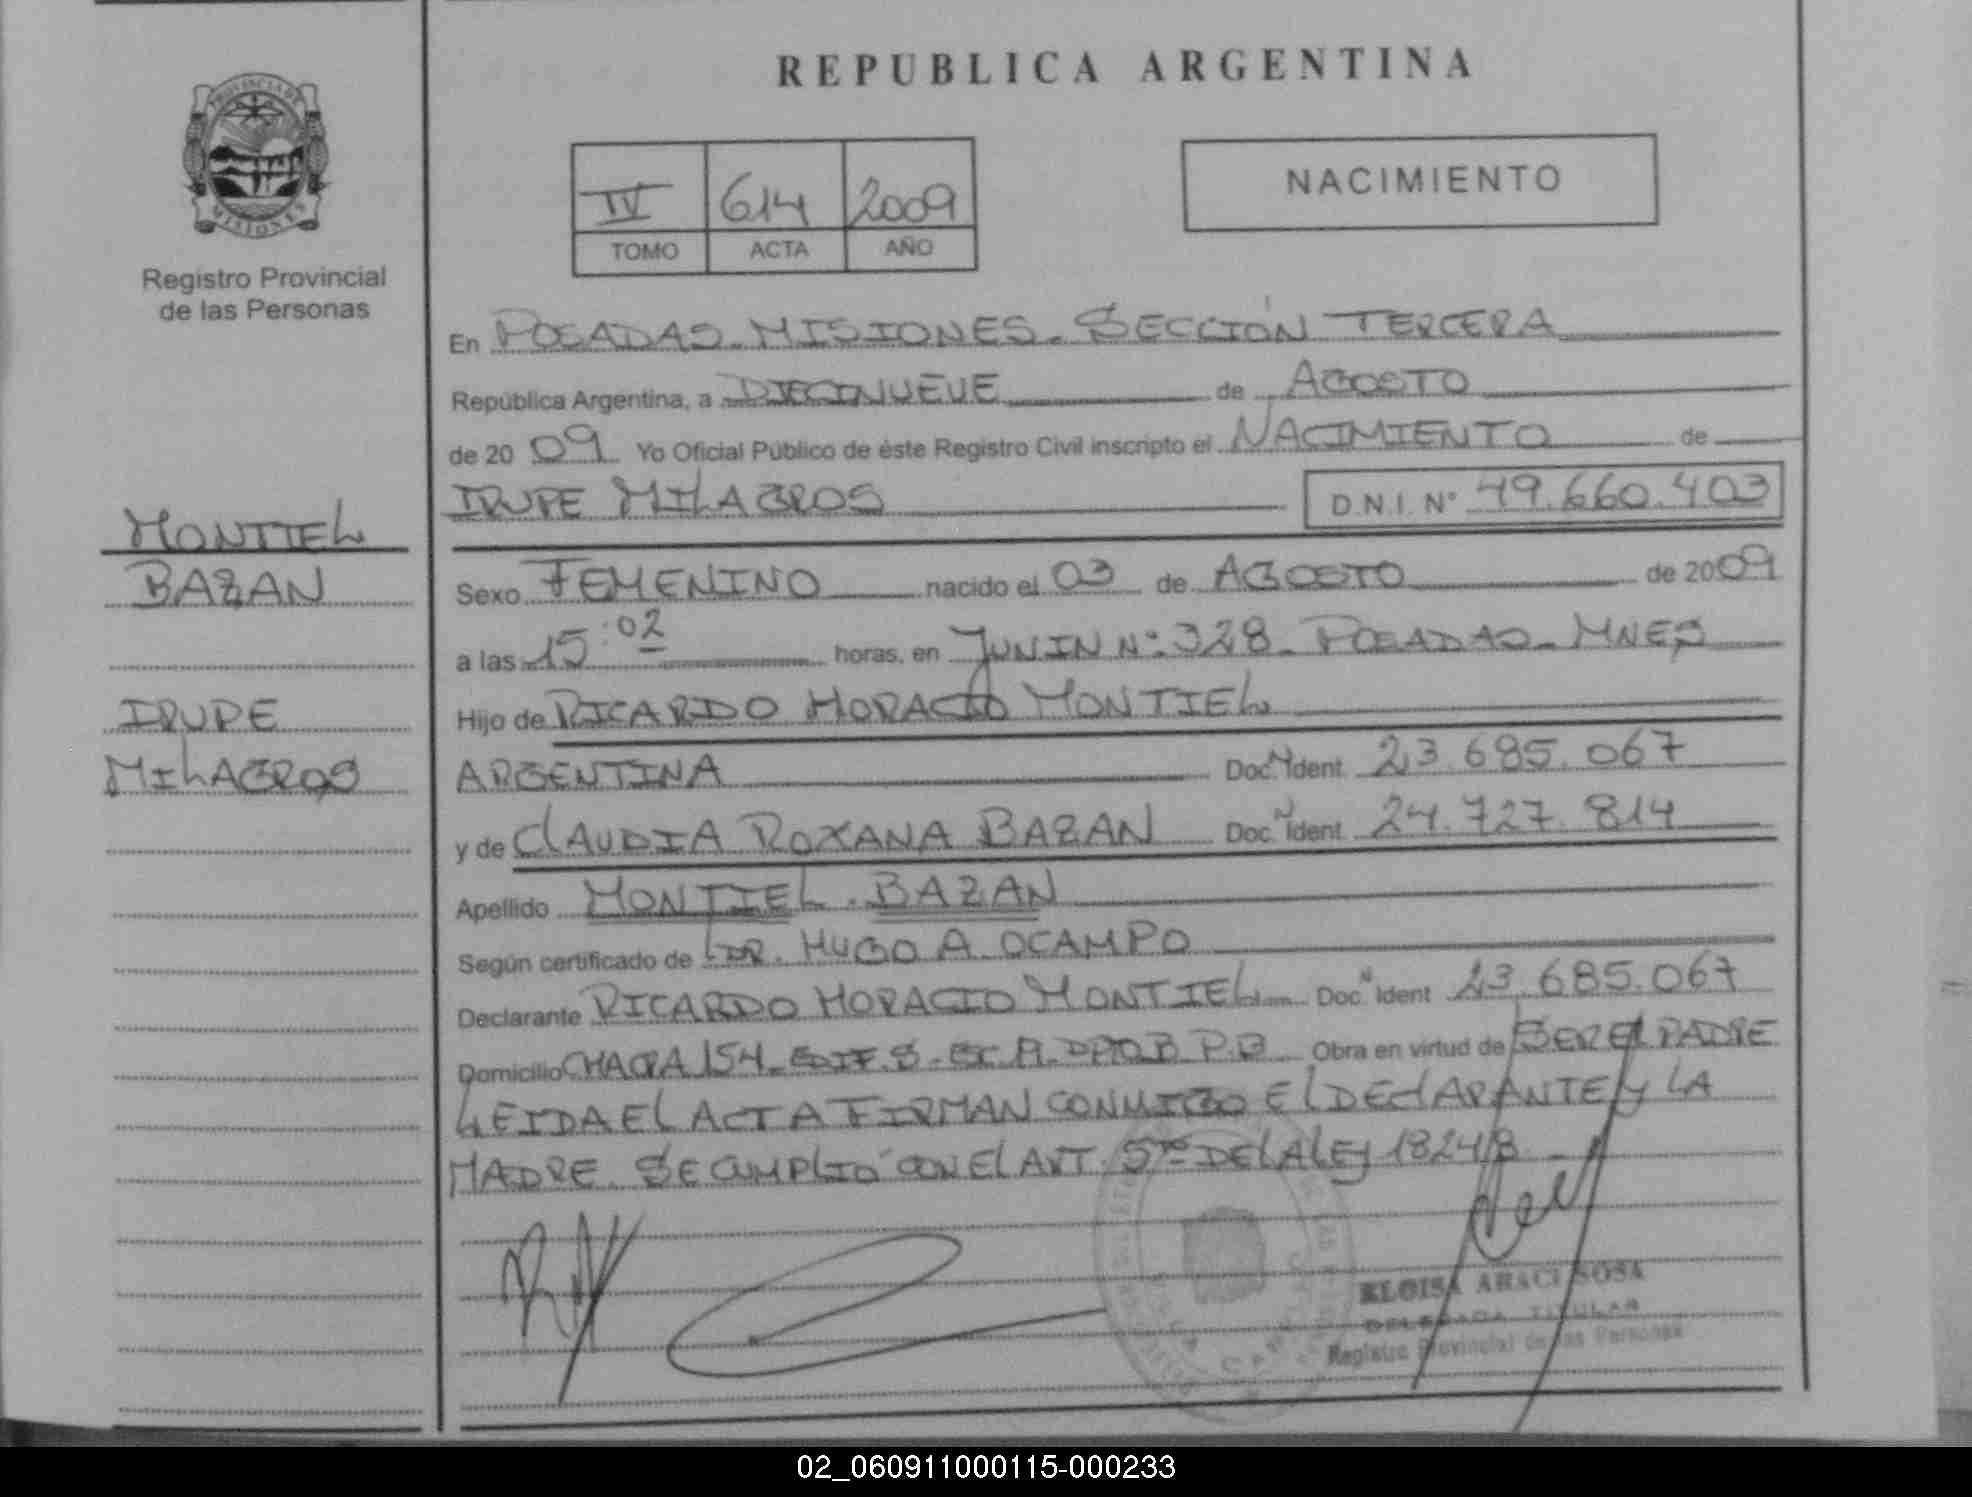 PROVINCIA DE
MISIONES
Registro Provincial
de las Personas
MONTIEL
BAZAN
IRUPE
MILAGROS
REPUBLICA ARGENTINA
IV 614 2009
TOMO ACTA AÑO
NACIMIENTO
En POSADAS - MISIONES - SECCIÓN TERCERA
República Argentina, a DIECINUEVE de AGOSTO
de 20 09 Yo Oficial Público de éste Registro Civil inscripto el NACIMIENTO de
IRUPE MILAGROS D.N.I. N° 49.660.403
Sexo FEMENINO nacido el 03 de AGOSTO de 2009
a las 15:02 horas, en JUNIN N: 328 - POSADAS - MNES
Hijo de RICARDO HORACIO MONTIEL
ARGENTINA Doc. N Ident. 23.685.067
y de CLAUDIA ROXANA BAZAN Doc. N Ident. 24.727.814
Apellido MONTIEL - BAZAN
Según certificado de DR. HUGO A. OCAMPO
Declarante RICARDO HORACIO MONTIEL Doc. N Ident. 23.685.067
Domicilio CHACRA 154 - EDIF. 8 - DPTO. B P.B Obra en virtud de SER EL PADRE
LEIDA EL ACTA FIRMAN CONMIGO EL DECLARANTE y LA
MADRE. SE CUMPLIO CON EL ART. 5to DE LA LEY 18248
ELOISA ARACI SOSA
DELEGADA TITULAR
Registro Provincial de las Personas
02_060911000115-000233